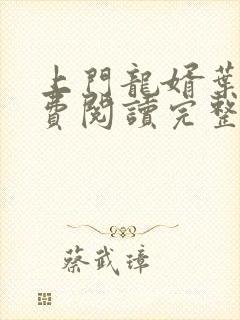 上門龍婿葉
費閱讀完整
蔡武璋